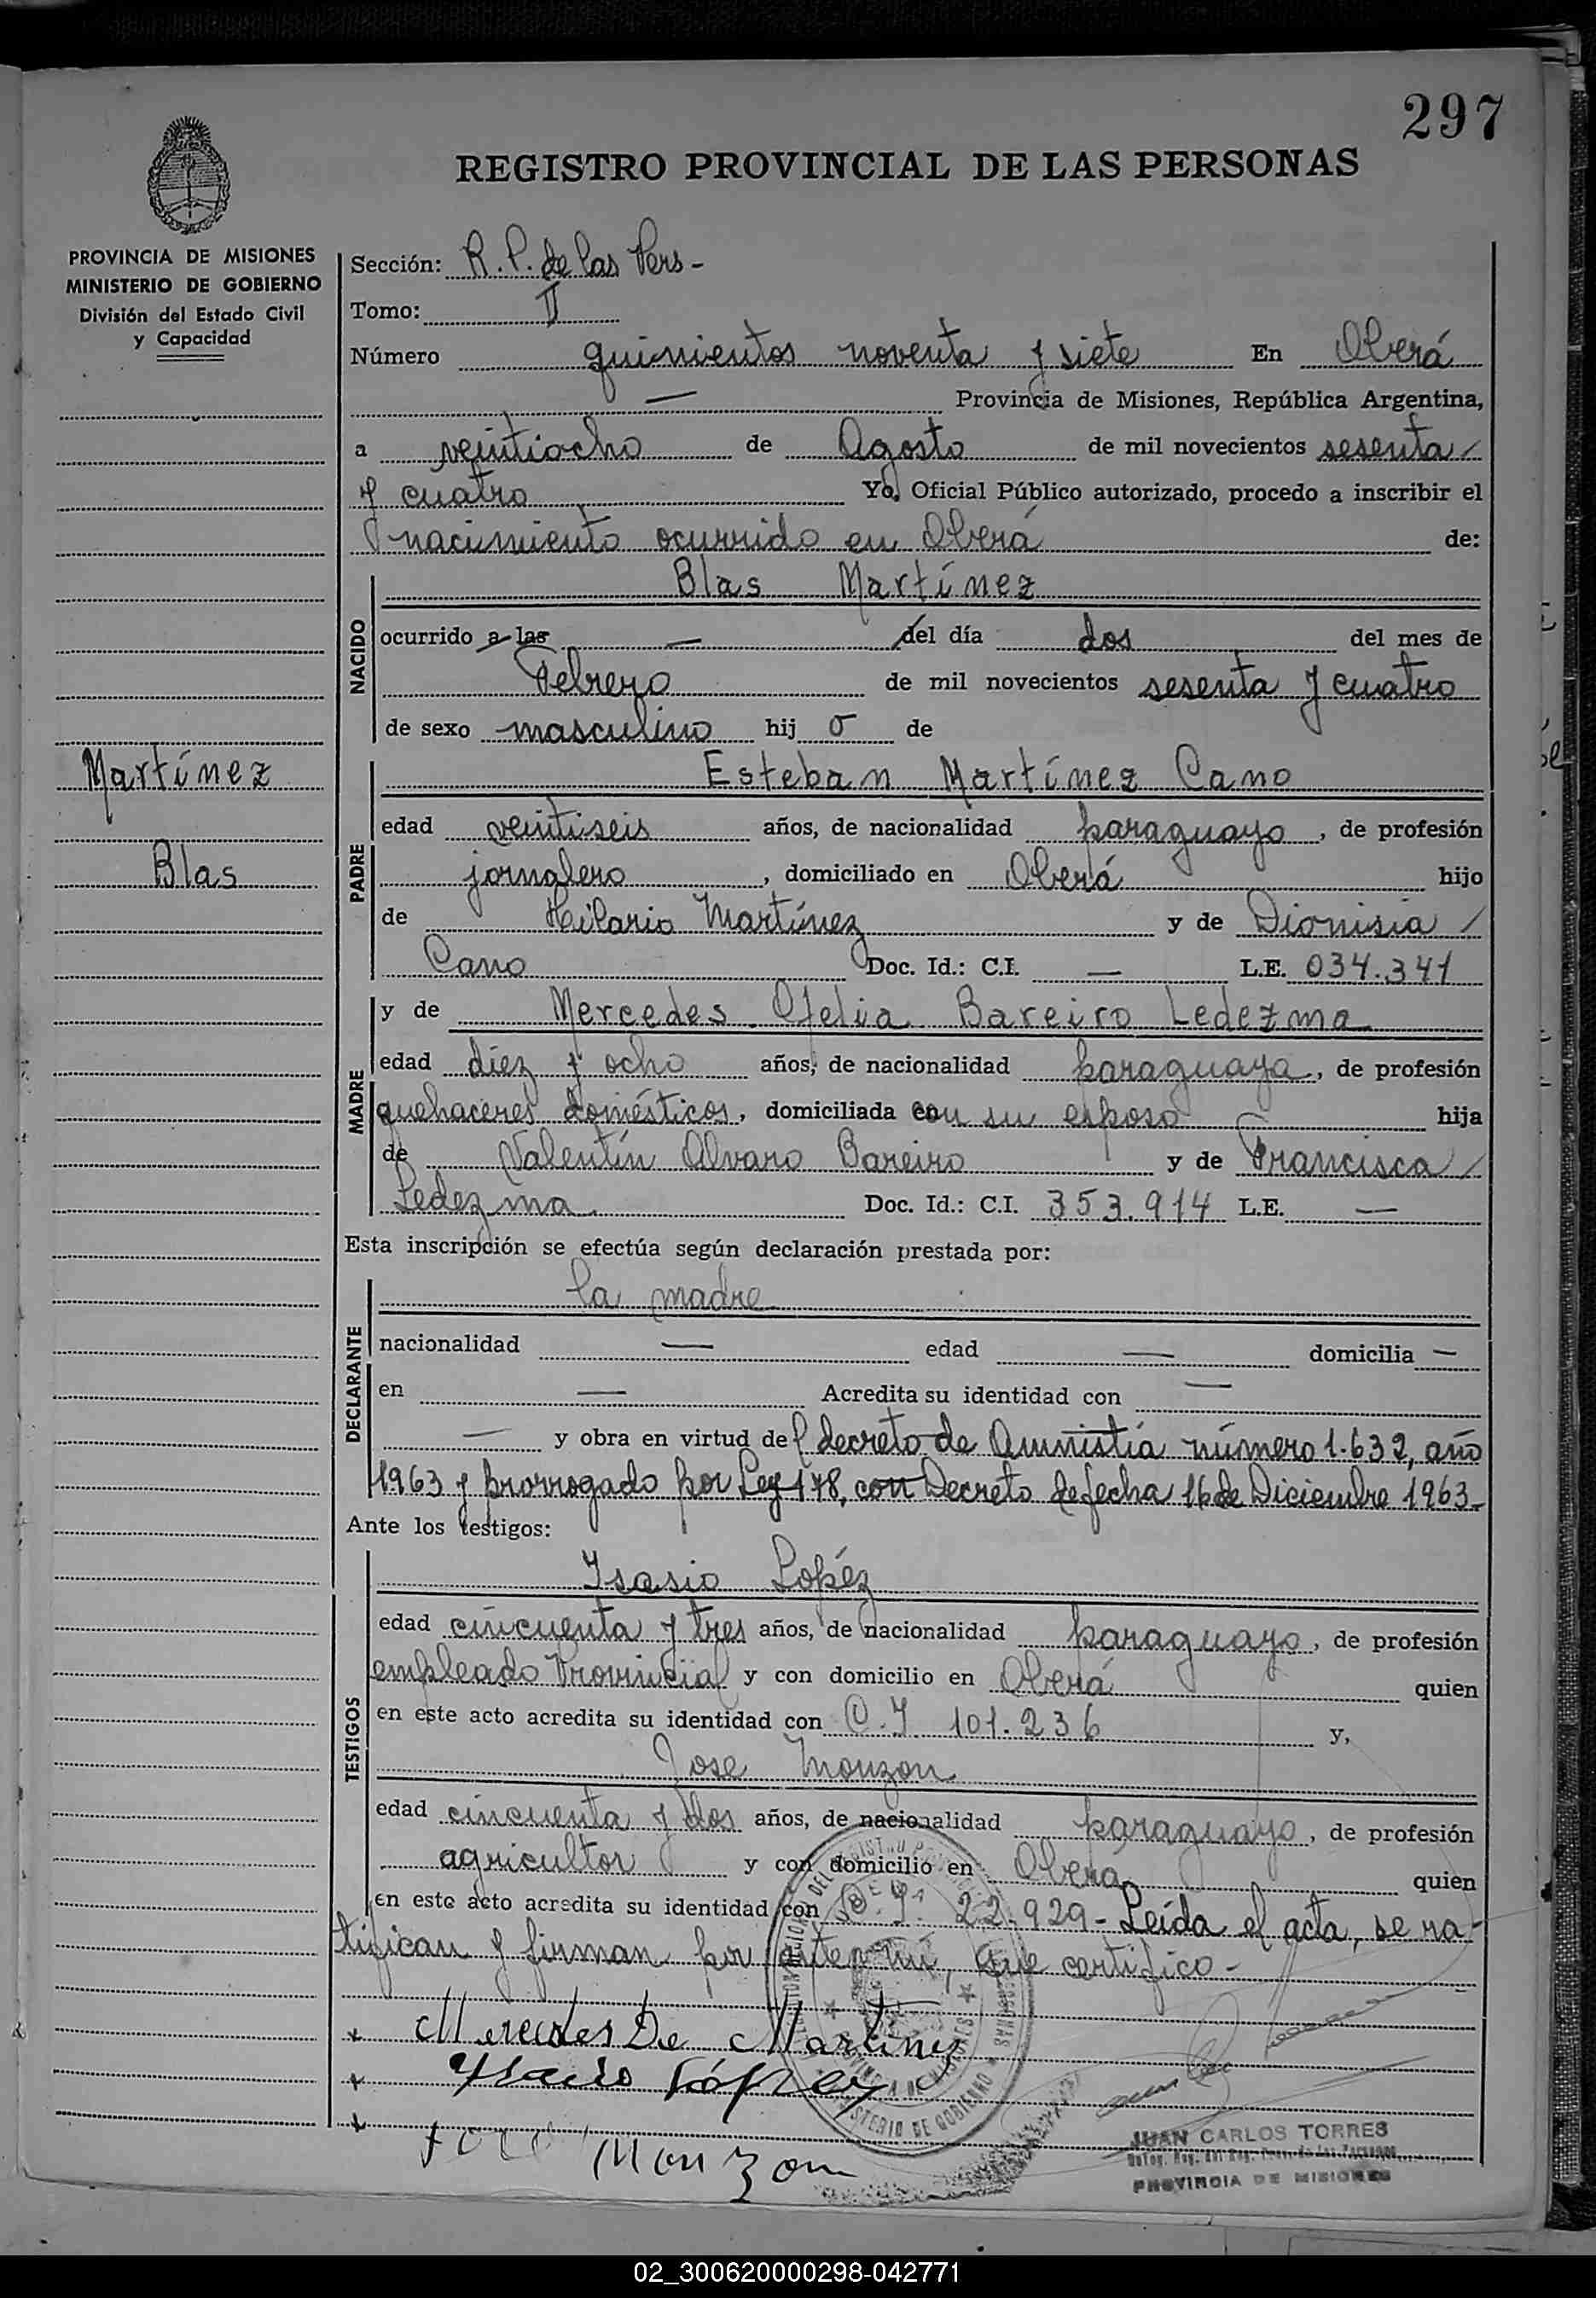 297
REGISTRO PROVINCIAL DE LAS PERSONAS
PROVINCIA DE MISIONES
MINISTERIO DE GOBIERNO
División del Estado Civil
y Capacidad
Martínez
Blas
Sección: R. P. de las Pers-
Tomo: II
Número quinientos noventa y siete En Oberá
— Provincia de Misiones, República Argentina,
a veintiocho de Agosto de mil novecientos sesenta/
y cuatro Yo, Oficial Público autorizado, procedo a inscribir el
nacimiento ocurrido en Oberá de:
NACIDO
Blas Martínez
ocurrido a las — del día dos del mes de
Febrero de mil novecientos sesenta y cuatro
de sexo masculino hij o de
PADRE
Esteban Martínez Cano
edad veintiseis años, de nacionalidad paraguayo, de profesión
jornalero, domiciliado en Oberá hijo
de Hilario Martínez y de Dionisia /
Cano Doc. Id.: C.I. — L.E. 034.341
MADRE
y de Mercedes Ofelia Bareiro Ledezma
edad diez y ocho años, de nacionalidad paraguaya, de profesión
quehaceres domésticos, domiciliada con su esposo hija
de Valentín Alvaro Bareiro y de Francisca/
Ledezma Doc. Id.: C.I. 353.914 L.E. —
Esta inscripción se efectúa según declaración prestada por:
DECLARANTE
la madre
nacionalidad — edad — domicilia —
en — Acredita su identidad con —
— y obra en virtud del decreto de Amnistía número 1.632, año
1963 y prorrogado por Ley 178, con Decreto de fecha 16 de Diciembre 1963-
Ante los testigos:
TESTIGOS
Ysasio Lopéz
edad cincuenta y tres años, de nacionalidad paraguayo, de profesión
empleado Provincial y con domicilio en Oberá quien
en este acto acredita su identidad con C. I 101.236 y,
Jose Monzon
edad cincuenta y dos años, de nacionalidad paraguayo, de profesión
agricultor y con domicilio en Oberá quien
en este acto acredita su identidad con C. I. 22.929 - Leída el acta, se ra-
tifican y firman por ante mí, que certifico-
Mercedes De Martinez
Ysacio López
Jose Monzon
JUAN CARLOS TORRES
PROVINCIA DE MISIONES
02_300620000298-042771